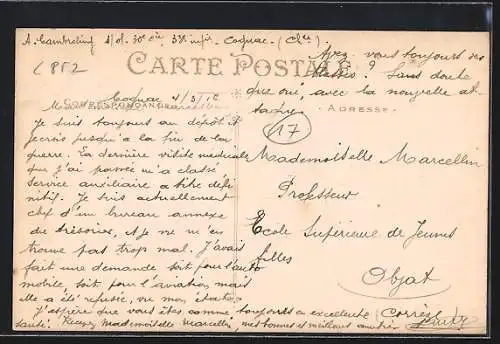 A. Cambreling s/of. 30e Cie, 38e infie. Cognac. (Chte)
Avez-vous toujours des
blessés? Sans doute
que oui, avec la nouvelle at-
taque.
(P52
CARTE POSTALE
CORRESPONDANCE
ADRESSE
Cognac 4/3/
17
Je suis toujours au dépôt et
je crois jusqu'à la fin de la
guerre. La dernière visite médicale
que j'ai passée m'a classé
service auxiliaire à titre défi
nitif. Je suis actuellement
chef d'un bureau annexe
du trésorier, et je ne m'en
trouve pas trop mal. J'avais
fait une demande soit pour l'auto
mobile, soit pour l'aviation, mais
elle a été refusée, vu mon état.
J'espère que vous êtes comme toujours en excellente
santé. Recevez Mademoiselle Marcellin, mes bonnes et meilleures amitiés
Mademoiselle Marcellin
Professeur
Ecole Supérieure de Jeunes
filles
Objat
(Corrèze)